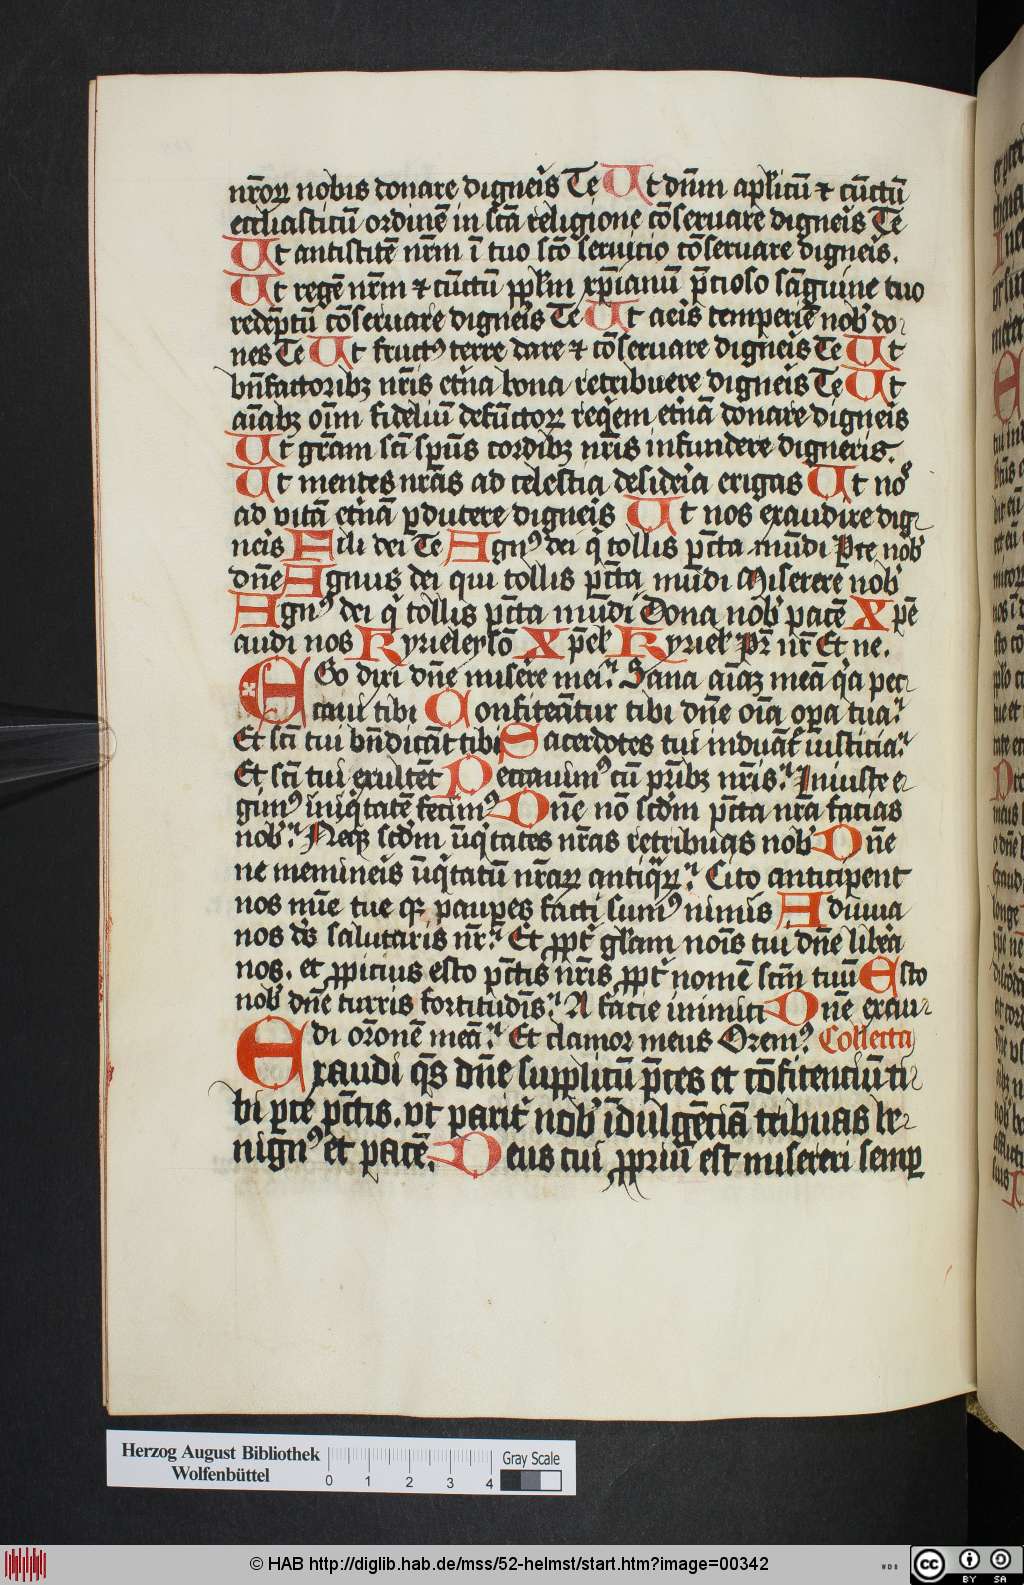 nr̄oꝝ nobis donare digneis Te Ut dn̄m aplicū ⁊ cūctū
eccliasticū ordinē in scā religione cōseruare digneis Te
Ut antistitē nr̄m ī tuo scō seruicio cōseruare digneis.
Ut regē nr̄m ⁊ cūctū pplm xp̄ianū p̄cioso sāguine tuo
redēptū cōseruare digneis Te Ut aeis temperiē nob do
nes Te Ut fruct⁹ terre dare ⁊ cōseruare digneis Te Ut
bn̄factoribꝫ nr̄is et̄na bona retribuere digneis Te Ut
aīabꝫ oīm fideliū defūctoꝝ reqiem et̄nā donare digneis
Ut gr̄am sci sp̄us cordibꝫ nr̄is infundere digneris.
Ut mentes nr̄as ad celestia desideria erigas Ut nos
ad vitā et̄nā ꝑducere digneis Ut nos exaudire dig
neis Fili dei Te Agn⁹ dei q tollis pc̄cta mūdi Pce nob
dn̄e Agnus dei qui tollis pc̄cta mūdi Miserere nob
Agn⁹ dei q tollis pc̄cta mūdi Dona nob pacē Xp̄e
audi nos Kyrieleysō Xp̄el Kyriel Pr̄ nr̄ Et ne.
EGo dixi dn̄e misere mei. Sana aīaꝫ meā q̄a pec
caui tibi Confiteātur tibi dn̄e oīa oꝑa tua.
Et sci tui bn̄dicāt tibi Sacerdotes tui induāt iusticia.
Et sci tui exultēt Peccauim⁹ cū pr̄ibꝫ nr̄is. Iniuste e
gim⁹ iniqitatē fecim⁹ Dn̄e nō scd̄m pc̄cta nr̄a facias
nob. Neqꝫ scd̄m īiqitates nr̄as retribuas nob Dn̄e
ne memineis īiqitatū nr̄aꝝ antiqꝝ. Cito anticipent
nos mīe tue qꝛ pauꝑes facti sum⁹ nimis Adiuua
nos ds̄ salutaris nr̄. Et ꝓpt gl̄iam nois tui dn̄e libera
nos. et ꝓpicius esto pc̄ctis nr̄is ꝓpt nomē scm̄ tuū Esto
nob dn̄e turris fortitudīs. A facie inimici Dn̄e exau
di or̄onē meā. Et clamor meus Orem⁹ Collecta
Exaudi qs̄ dn̄e supplicū p̄ces et cōfitenciū ti
bi pce pc̄ctis. vt parit nob īdulgēciā tribuas be
nign⁹ et pacē. Deus cui ꝓpriū est misereri semꝑ
Herzog August Bibliothek
Wolfenbüttel
0 1 2 3 4
Gray Scale
© HAB http://diglib.hab.de/mss/52-helmst/start.htm?image=00342
WDB
cc BY SA